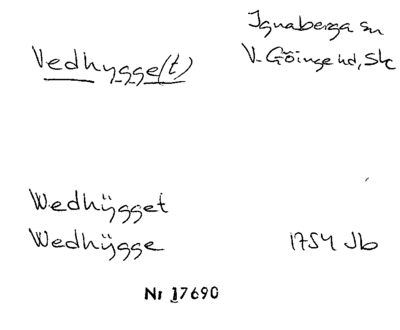 Vedhygge(t)
Ignaberga sn
V. Göinge hd, Sk
Wedhÿgget
Wedhÿgge 1754 Jb
Nr 17690